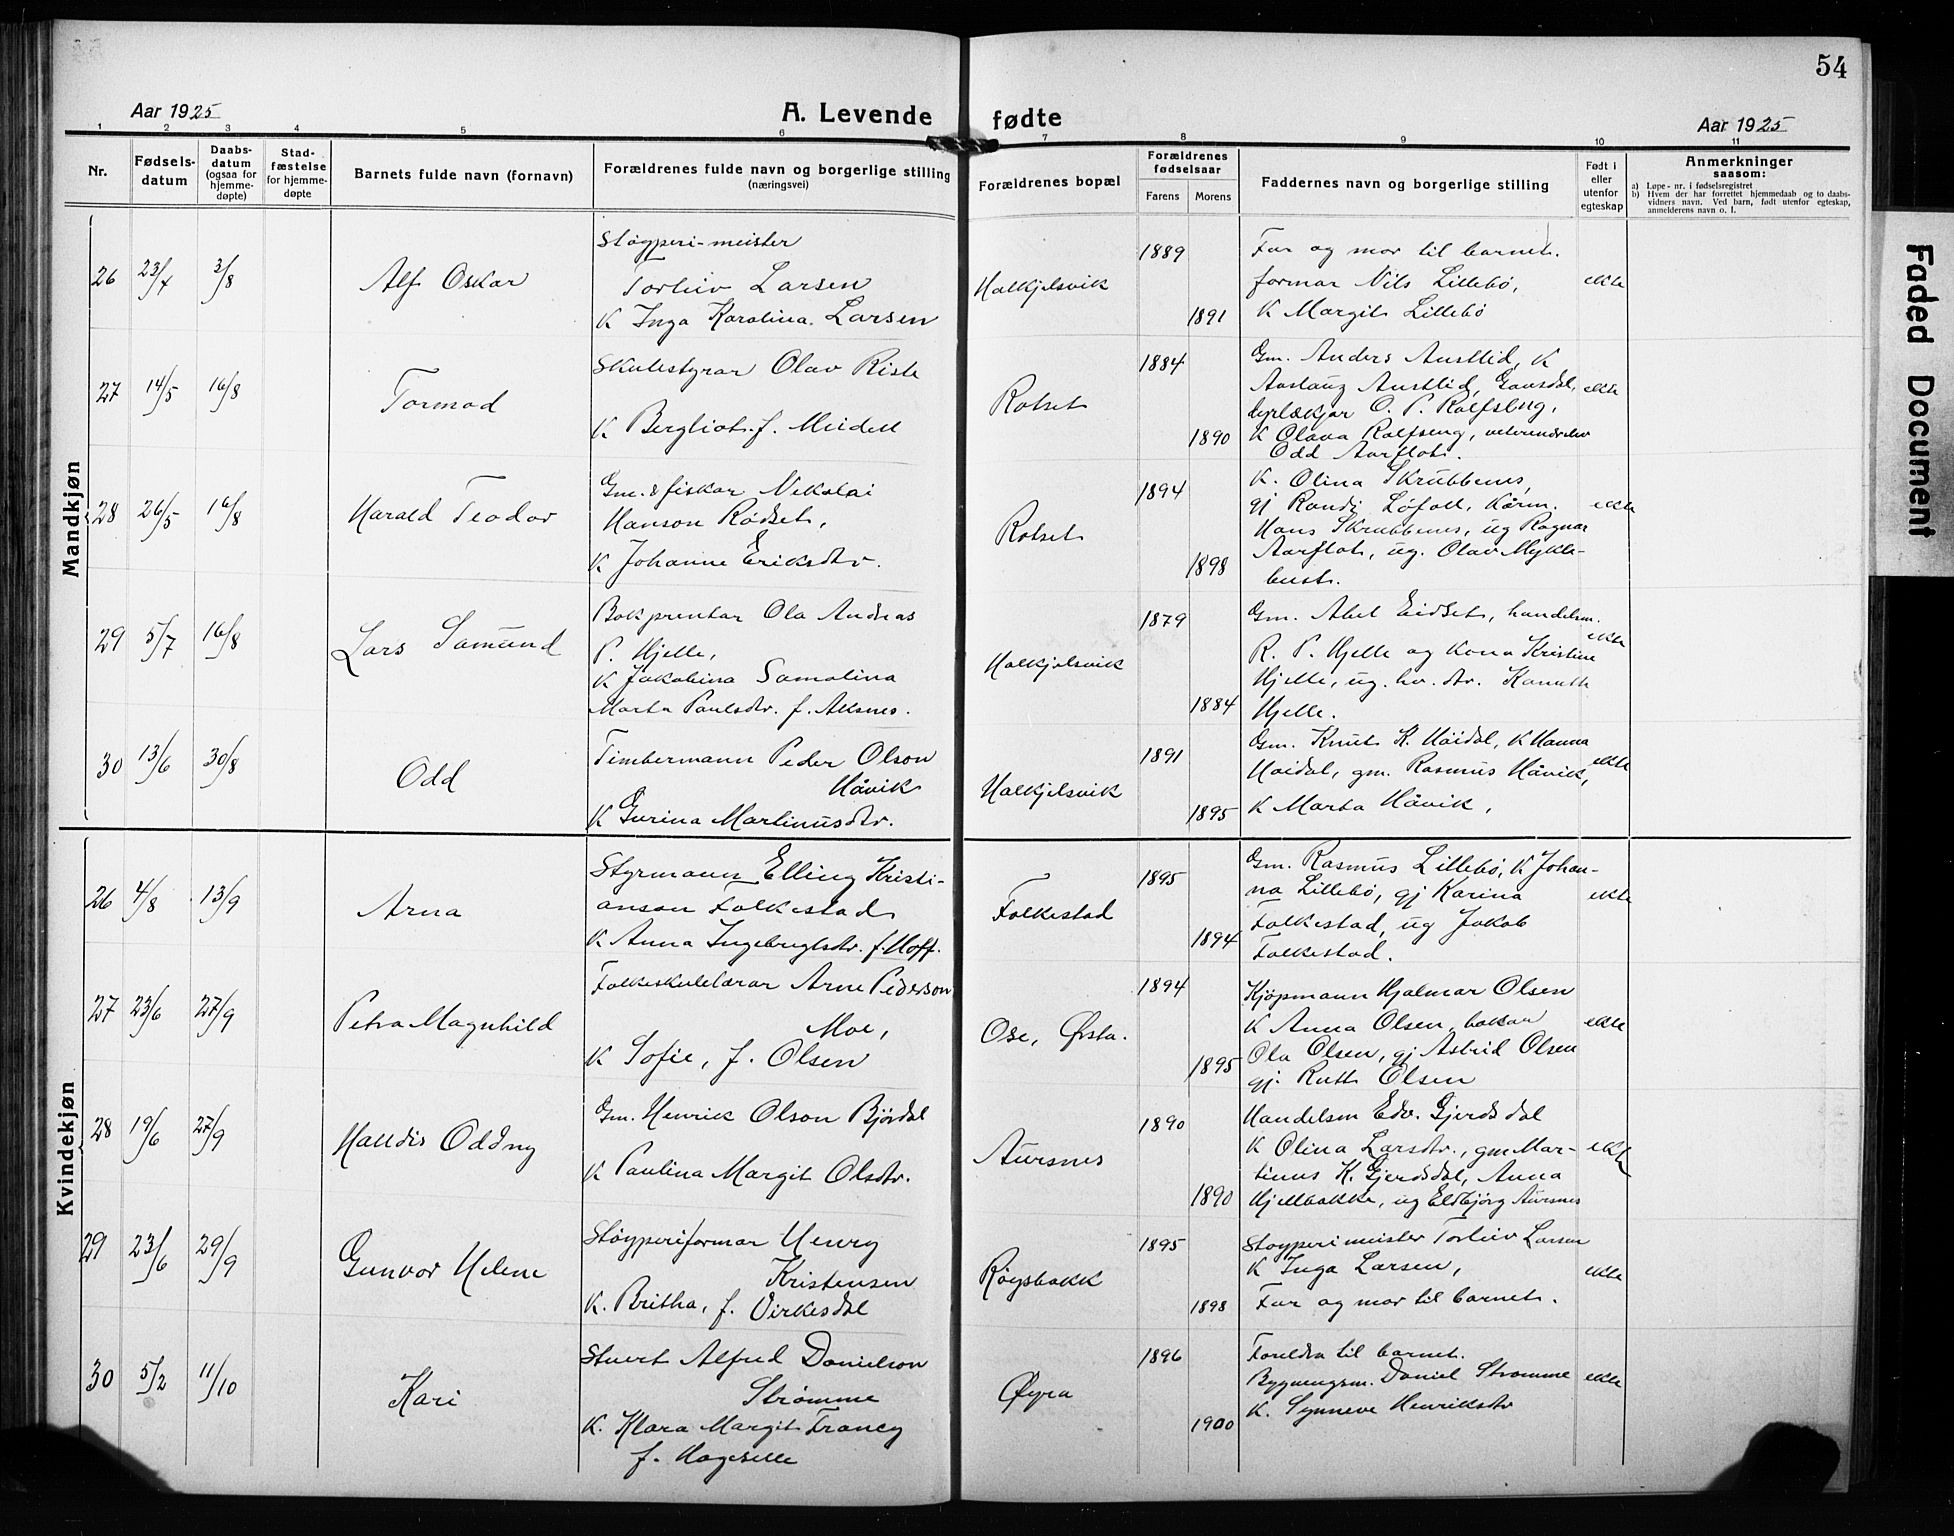 54
Aar 1925
A. Levende fødte
Aar 1925
1 2 3 4 5 6 7 8 9 10 11
Nr.
Fødsels-
datum
Daabs-
datum
(ogsaa for
hjemme-
døpte)
Stad-
fæstelse
for hjemme-
døpte
Barnets fulde navn (fornavn)
Forældrenes fulde navn og borgerlige stilling
(næringsvei)
Forældrenes bopæl
Forældrenes
fødselsaar
Farens Morens
Faddernes navn og borgerlige stilling
Født i
eller
utenfor
egteskap
Anmerkninger
saasom:
a) Løpe-nr. i fødselsregistret
b) Hvem der har forrettet hjemmedaab og to daabs-
vidners navn. Ved barn, født utenfor egteskap,
anmelderens navn o. l.
Mandkjøn
26 23/7 3/8
Alf Oskar
Støyperi-meister
Torleiv Larsen
K Inga Karolina Larsen
Halkjelsvik
1889
1891
Far og mor til barnet.
formar Nils Lillebø,
K Margit Lillebø
ekte
27 14/5 16/8
Tormod
Skulestyrar Olav Riste
K Bergliot f. Meidell
Rotset
1884
1890
Gm. Anders Austlid, K
Aaslaug Austlid, Gausdal,
dyrlækjar O. P. Rolfseng,
K Olava Rolfseng, veterinærelev
Odd Aarflot.
ekte
28 26/5 16/8
Harald Teodor
Gm. & fiskar Nikolai
Hanson Rødset,
K Johanne Eriksdtr.
Rotset
1894
1898
K. Olina Skrubbenes,
gj Randi Løfoll, Kårm.
Hans Skrubbenes, ug Ragnar
Aarflot, ug. Olav Mykle-
bust.
ekte
29 5/7 16/8
Lars Samund
Bokprentar Ola Andreas
P. Hjelle,
K Jakobina Samolina
Marta Paulsdtr. f. Alsnes.
Halkjelsvik
1879
1884
Gm. Abel Eidset, handelsm.
R. P. Hjelle og kona Kristine
Hjelle, ug. hv. dtr. Kanutte
Hjelle.
ekte
30 13/6 30/8
Odd
Timbermann Peder Olson
Håvik
K Gurina Martinusdtr.
Halkjelsvik
1891
1895
Gm. Knut K. Høidal, K Hanna
Høidal, gm. Rasmus Håvik,
K Marta Håvik,
ekte
Kvindekjøn
26 4/8 13/9
Arna
Styrmann Elling Kristi-
anson Folkestad
K Anna Ingebrigtsdtr. f. Hoff.
Folkestad
1895
1894
Gm. Rasmus Lillebø, K Johan-
na Lillebø, gj Karina
Folkestad, ug Jakob
Folkestad.
ekte
27 23/6 27/9
Petra Magnhild
Folkeskulelærar Arne Pederson
Moe,
K Sofie, f. Olsen
Ose, Ørsta.
1894
1895
Kjøpmann Hjalmar Olsen
K Anna Olsen, bakar
Ola Olsen, gj Astrid Olsen
gj. Ruth Olsen
ekte
28 19/6 27/9
Halldis Oddny
Gm. Henrik Olson Bjørdal
K Paulina Margit Olsdtr.
Aursnes
1890
1890
Handelsm Edv. Gjerdsdal
K Olina Larsdtr., gm Mar-
tinus K. Gjerdsdal, Anna
Hjellbakke, ug Eldbjørg Aursnes
ekte
29 23/6 29/9
Gunvor Helene
Støyperiformar Henry
Kristensen
K. Britha, f. Virkesdal
Røysbakk
1895
1898
Støyperimeister Torleiv Larsen
K Inga Larsen,
Far og mor til barnet.
ekte
30 5/2 11/10
Kari
Stuert Alfred Danielson
Strømme
K. Klara Margit Francy
f. Hageselle
Øyra
1896
1900
Foreldra til barnet.
Bygningsm. Daniel Strømme
K. Synneve Henriksdtr
ekte
Faded Document